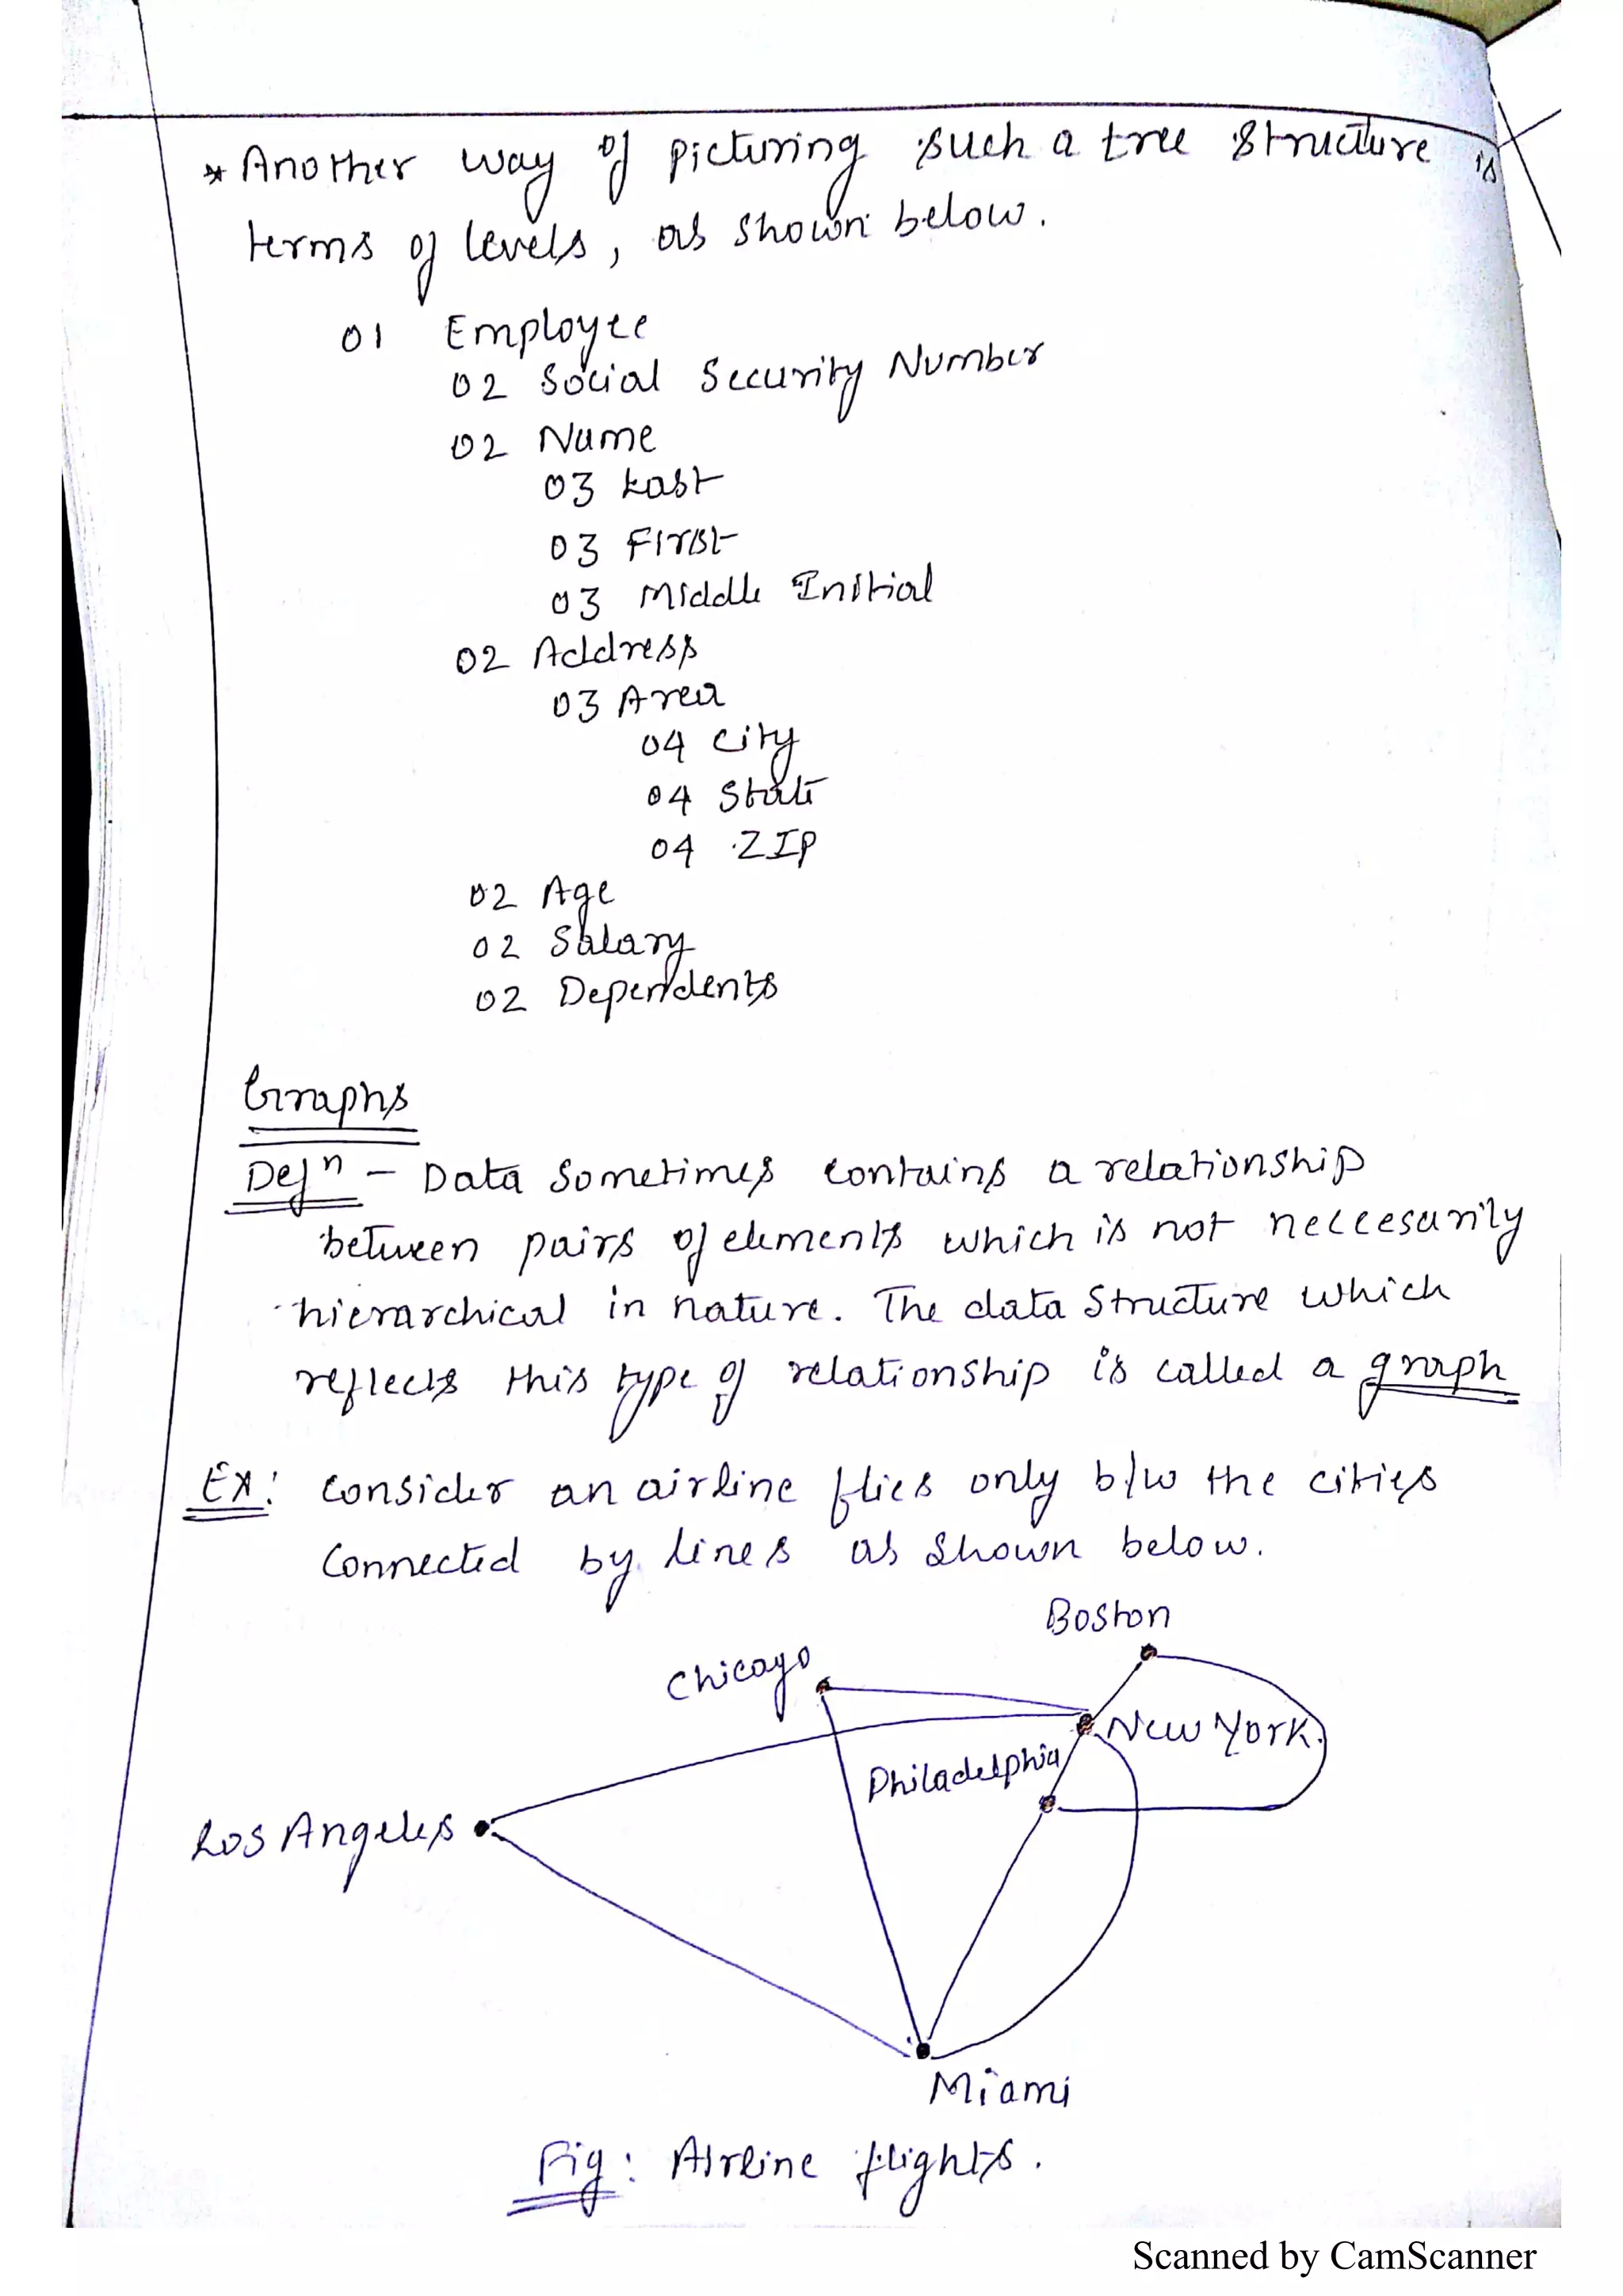 * Another way of picturing such a tree structure is
terms of levels, as shown below.
01 Employee
02 Social Security Number
02 Name
03 Last
03 First
03 Middle Initial
02 Address
03 Area
04 City
04 State
04 ZIP
02 Age
02 Salary
02 Dependents
Graphs
Defⁿ - Data sometimes contains a relationship
between pairs of elements which is not neccesarily
hierarchical in nature. The data structure which
reflects this type of relationship is called a graph
Ex: Consider an airline flies only b/w the cities
connected by lines as shown below.
Boston
Chicago
New York.
Philadelphia
Los Angeles
Miami
Fig: Airline flights.
Scanned by CamScanner